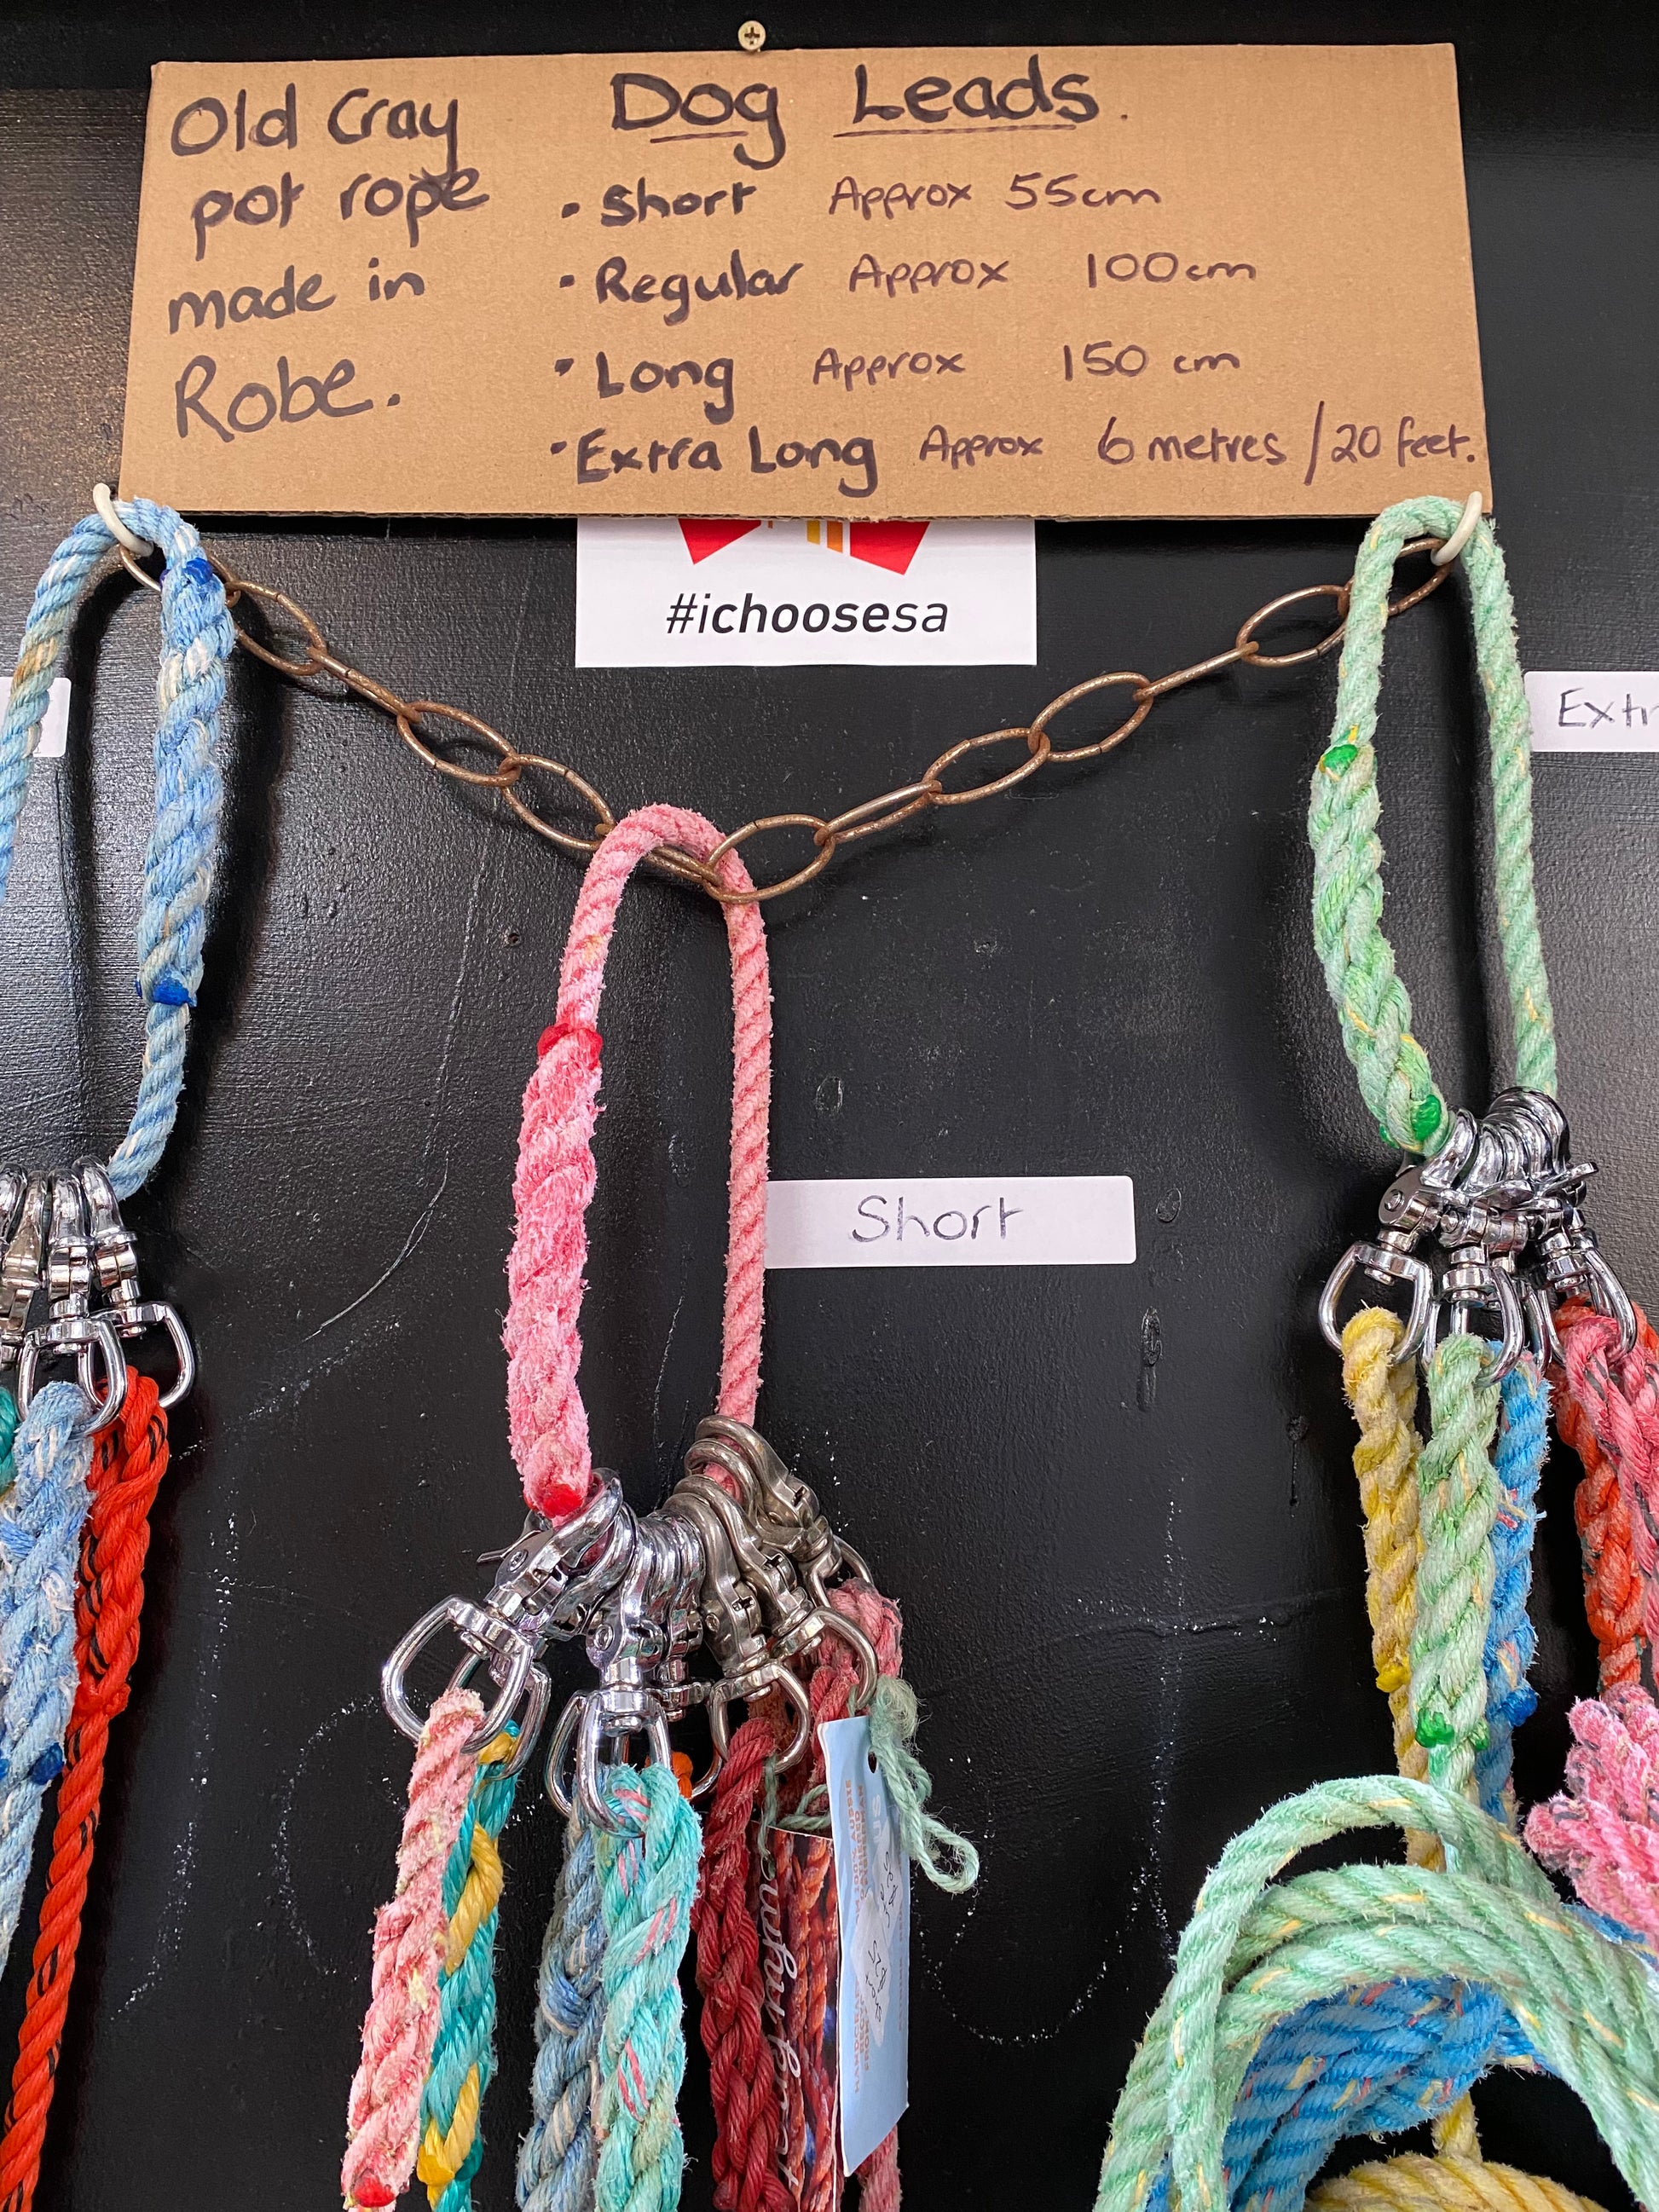 Old Cray
pot rope
made in
Robe.
Dog Leads.
• Short Approx 55cm
• Regular Approx 100cm
• Long Approx 150 cm
• Extra Long Approx 6 metres / 20 feet.
#ichoosesa
Short